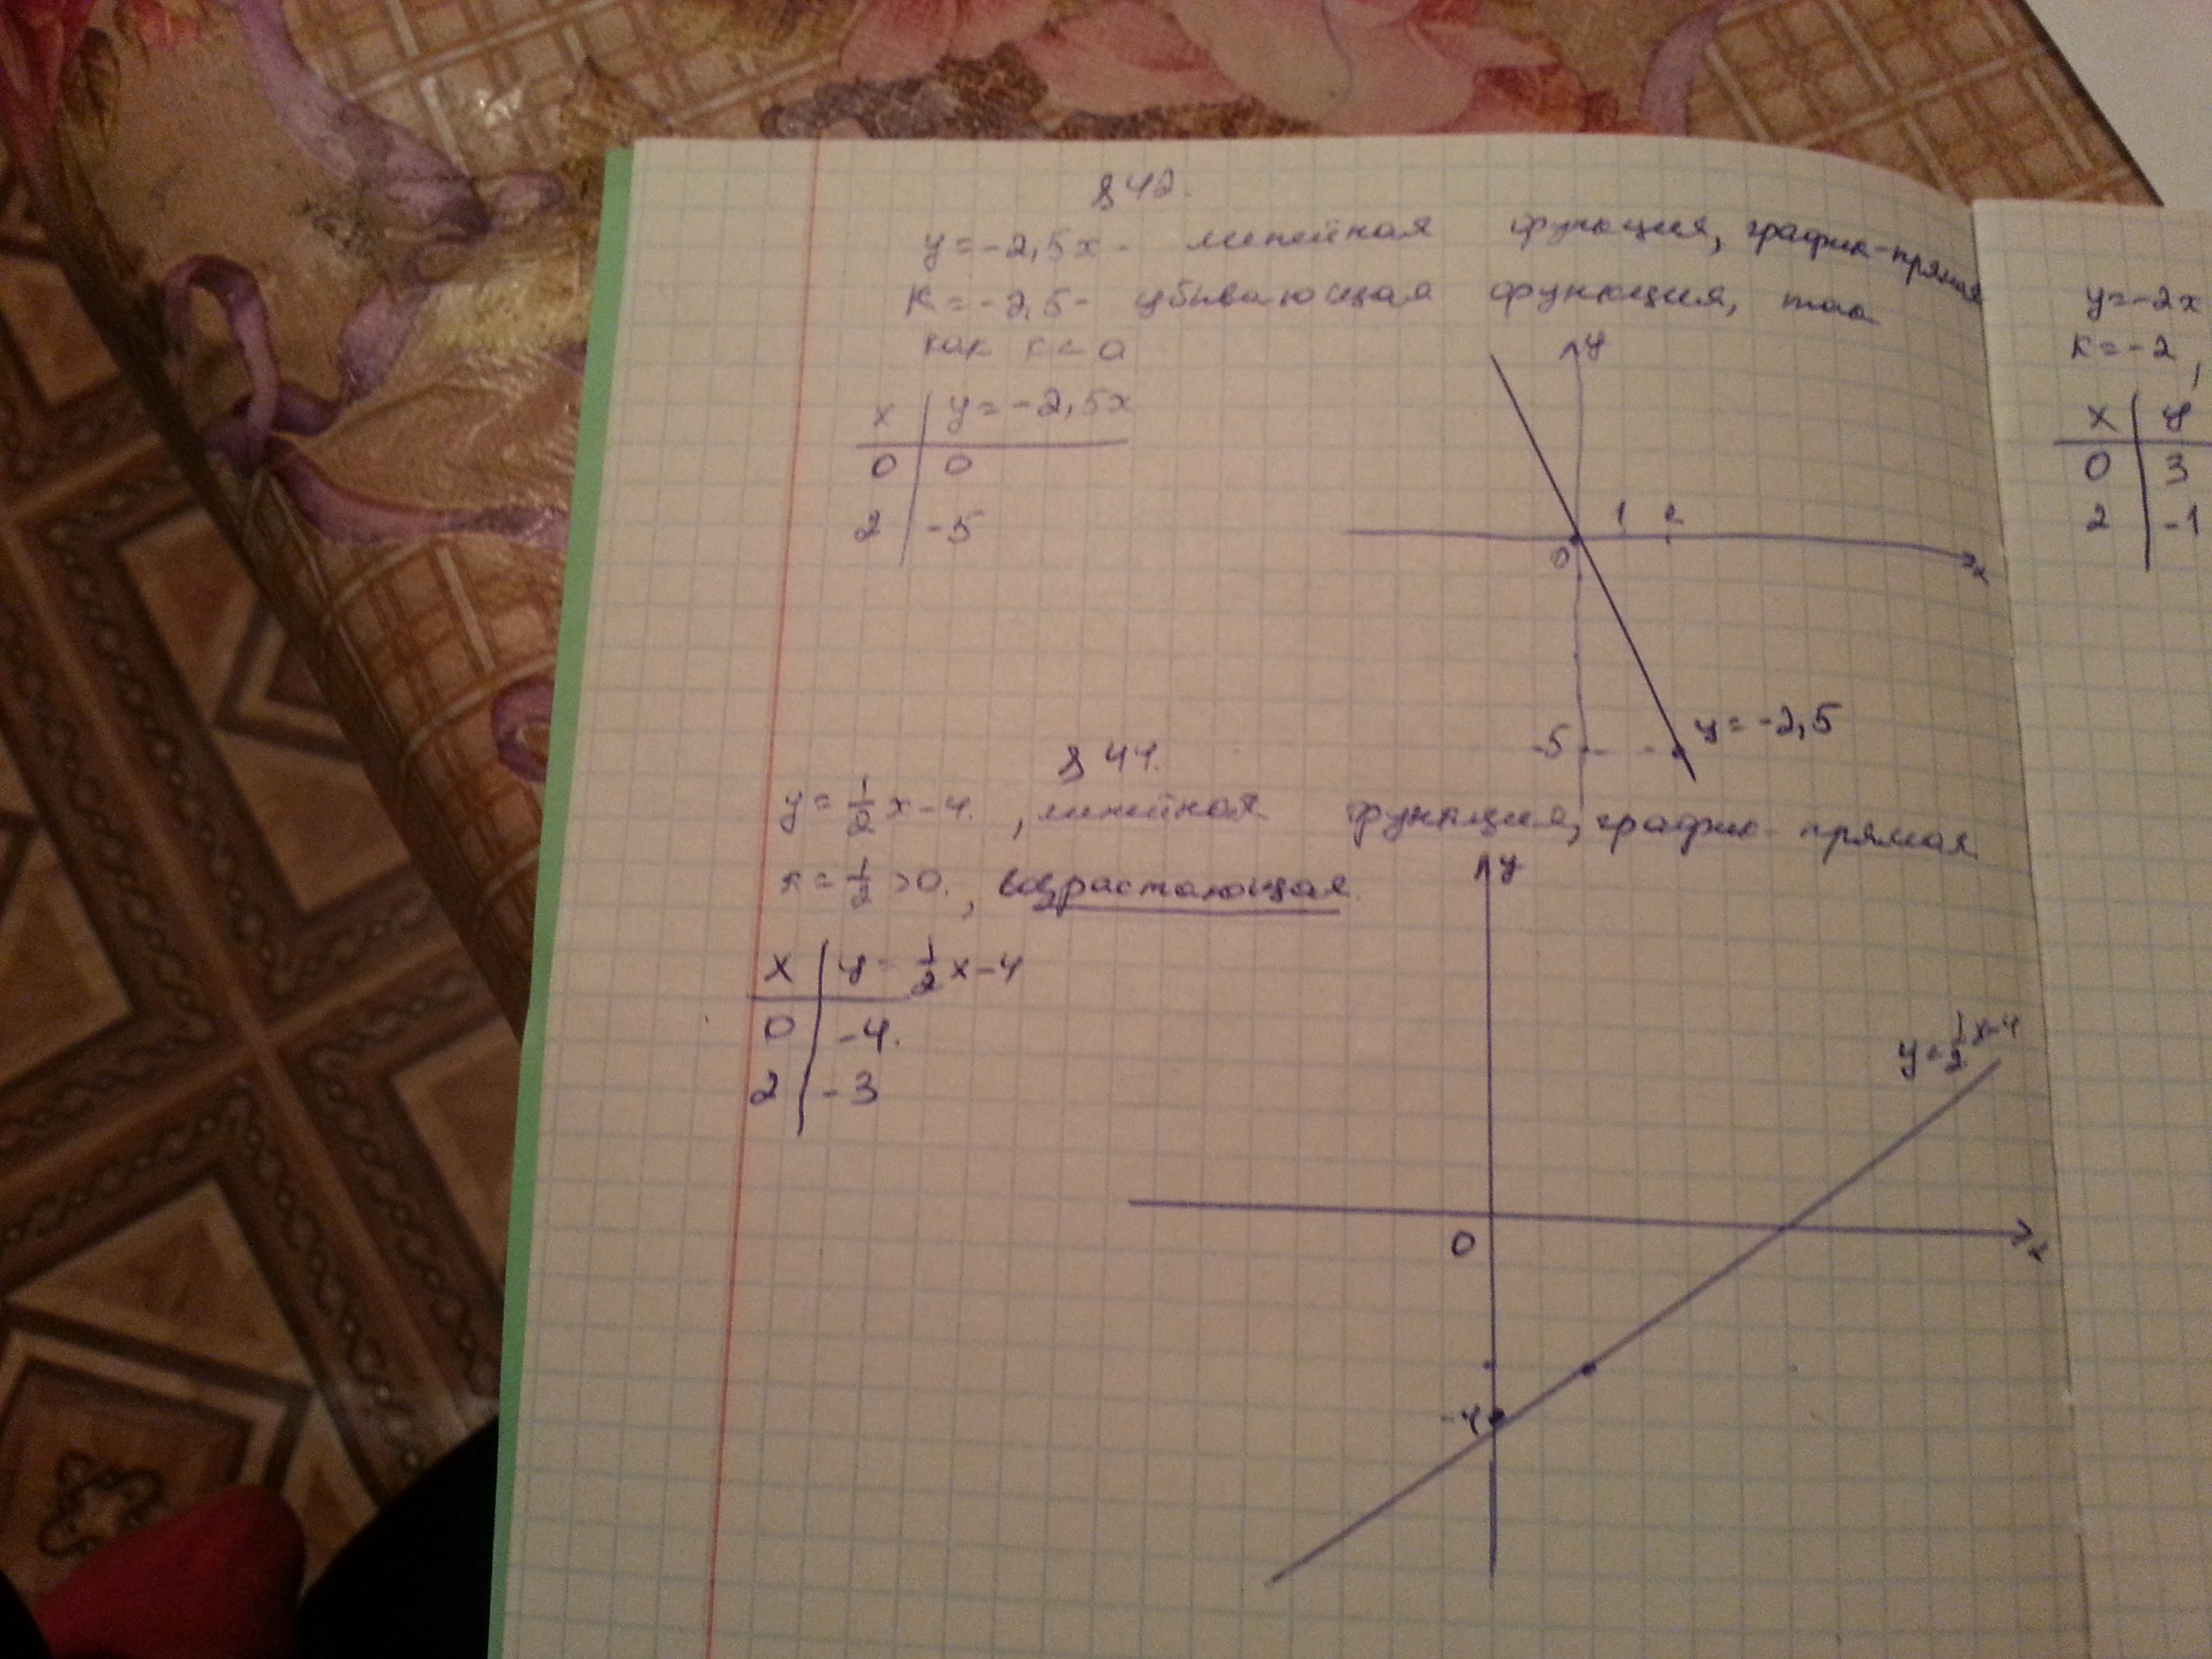 § 42.
y = -2,5x - линейная функция, график - прямая
k = -2,5 - убывающая функция, так
как k < 0
x | y = -2,5x
0 | 0
2 | -5
y
1 2
0
x
-5
y = -2,5
§ 44.
y = 1/2 x - 4. , линейная функция, график - прямая
k = 1/2 > 0. , возрастающая.
x | y = 1/2 x - 4
0 | -4.
2 | -3
y
y = 1/2 x - 4
0
x
-4
y = -2x
k = -2,
x | y
0 | 3
2 | -1